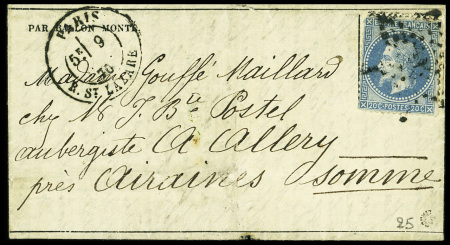 PAR BALLON MONTÉ
PARIS
5E 9
70
R. ST LAZARE
FRANÇAIS
20C POSTES 20C
Madame Gouffé Maillard
chez Mr J. Bte Postel
aubergiste A Allery
près Airaines Somme
25